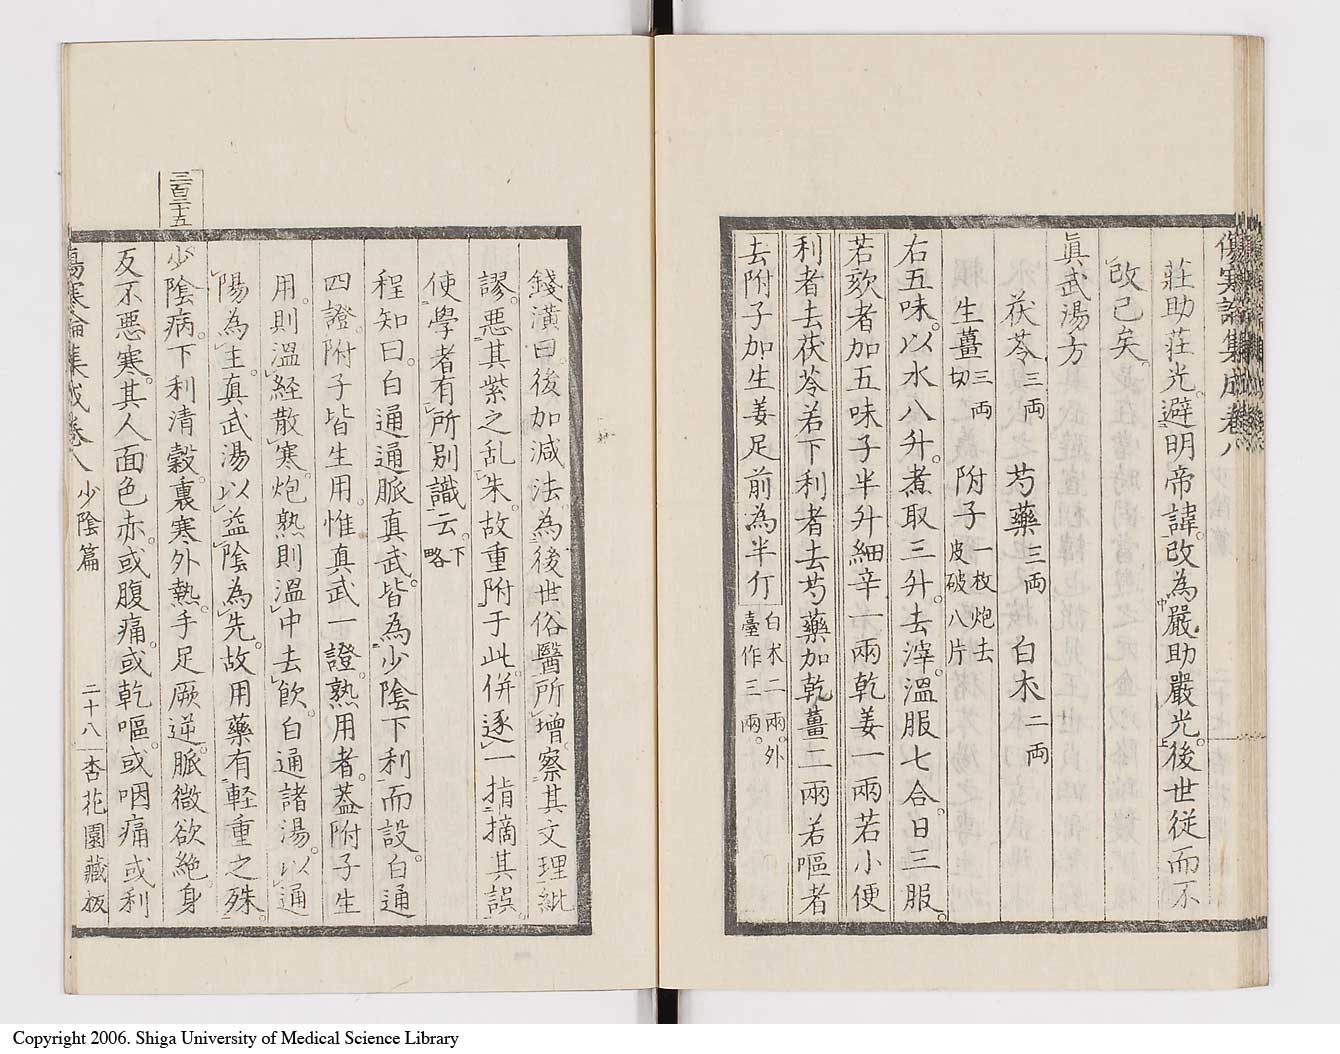 傷寒論集成卷八
莊助莊光。避明帝諱。改為嚴助嚴光。後世従而不
改已矣。
眞武湯方
茯苓三両 芍藥三両 白木二両
生薑三両切 附子一枚炮去皮破八片
右五味。以水八升。煮取三升。去滓。溫服七合。日三服。
若欬者加五味子半升細辛一兩乾姜一兩若小便
利者去茯苓若下利者去芍藥加乾薑二兩若嘔者
去附子加生姜足前為半斤白朮二兩。外臺作三兩。
錢潢曰。後加減法。為後世俗醫所增。察其文理紕
謬。惡其紫之乱朱。故重附于此。併逐一指摘其誤。
使學者有所別識云。下略
程知曰。白通通脈真武。皆為少陰下利而設。白通
四證。附子皆生用。惟真武一證。熟用者。蓋附子生
用。則溫経散寒。炮熟則溫中去飲。白通諸湯。以通
陽為主。真武湯以益陰為先。故用藥有軽重之殊。
三百二十五
少陰病。下利清穀。裏寒外熱。手足厥逆。脈微欲絶。身
反不惡寒。其人面色赤。或腹痛。或乾嘔。或咽痛或利
傷寒論集成卷八 少陰篇 二十八 杏花園藏板
Copyright 2006. Shiga University of Medical Science Library